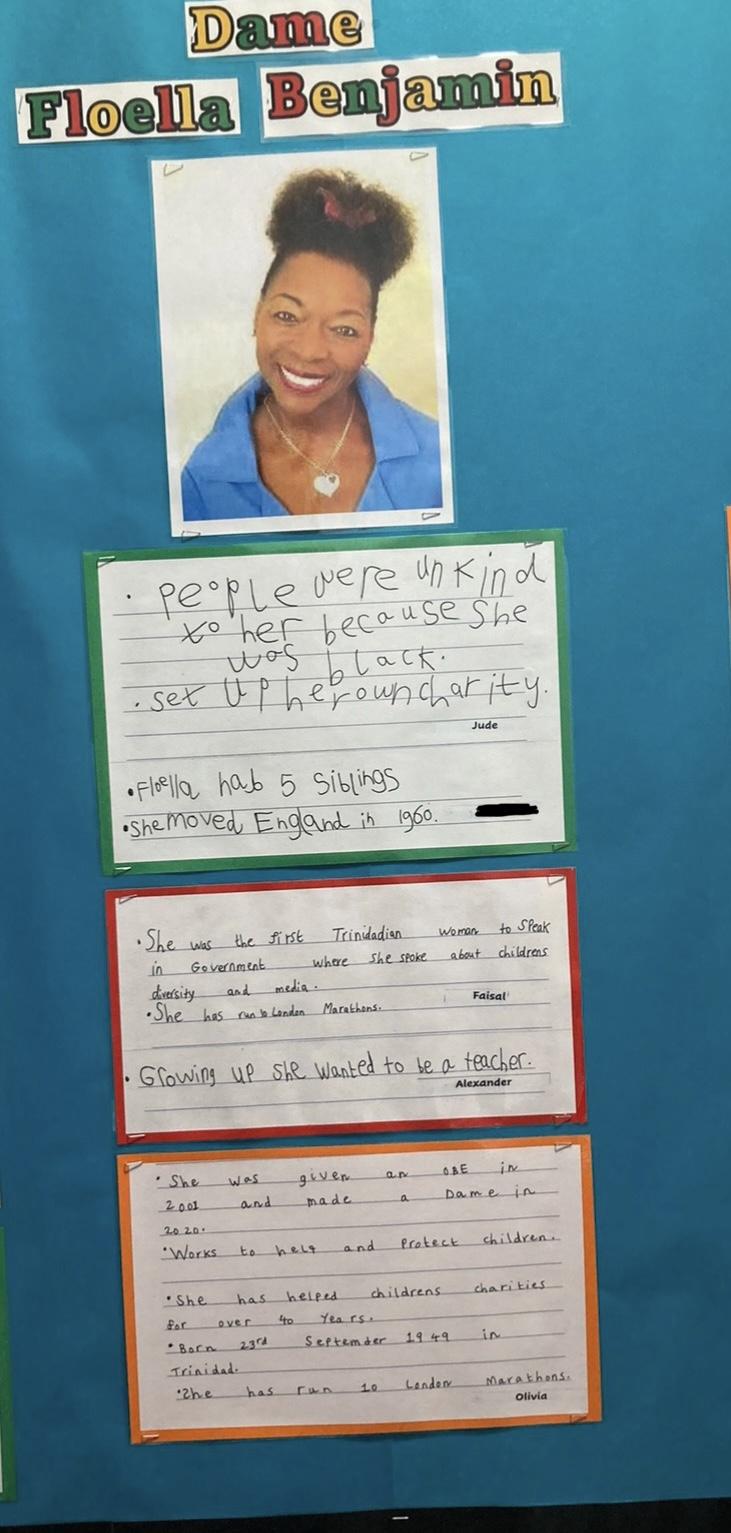 Dame
Floella Benjamin
• People were unkind
to her because she
was black.
• set up her own charity.
Jude
• Floella hab 5 siblings
• She moved England in 1960.
• She was the first Trinidadian woman to speak
in Government where she spoke about childrens
diversity and media.
• She has run 10 London Marathons.
Faisal
• Growing up she wanted to be a teacher.
Alexander
• She was given an OBE in
2001 and made a Dame in
2020.
• Works to help and protect children.
• She has helped childrens charities
for over 40 years.
• Born 23rd September 1949 in
Trinidad.
• She has run 10 London Marathons.
Olivia